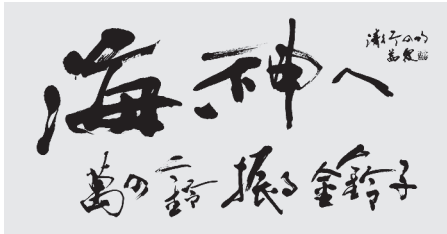 海神へ
萬の鈴振る金鈴子